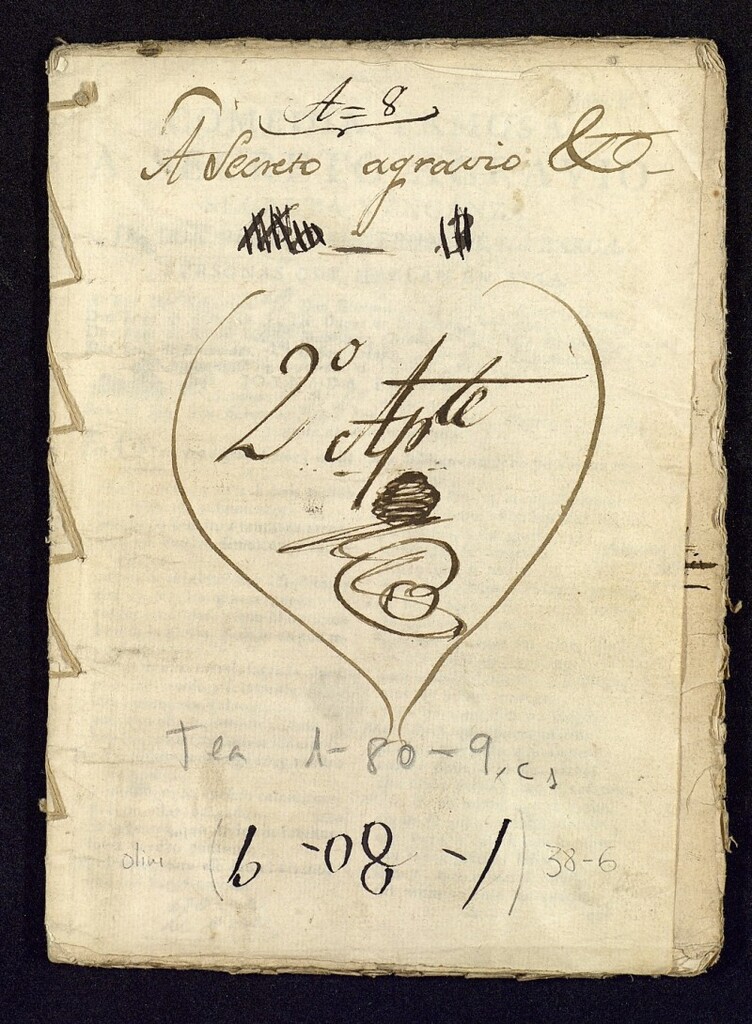 A=8
A Secreto agravio &
2º Apte
Tea 1-80-9, c1
1-80-9
38-6